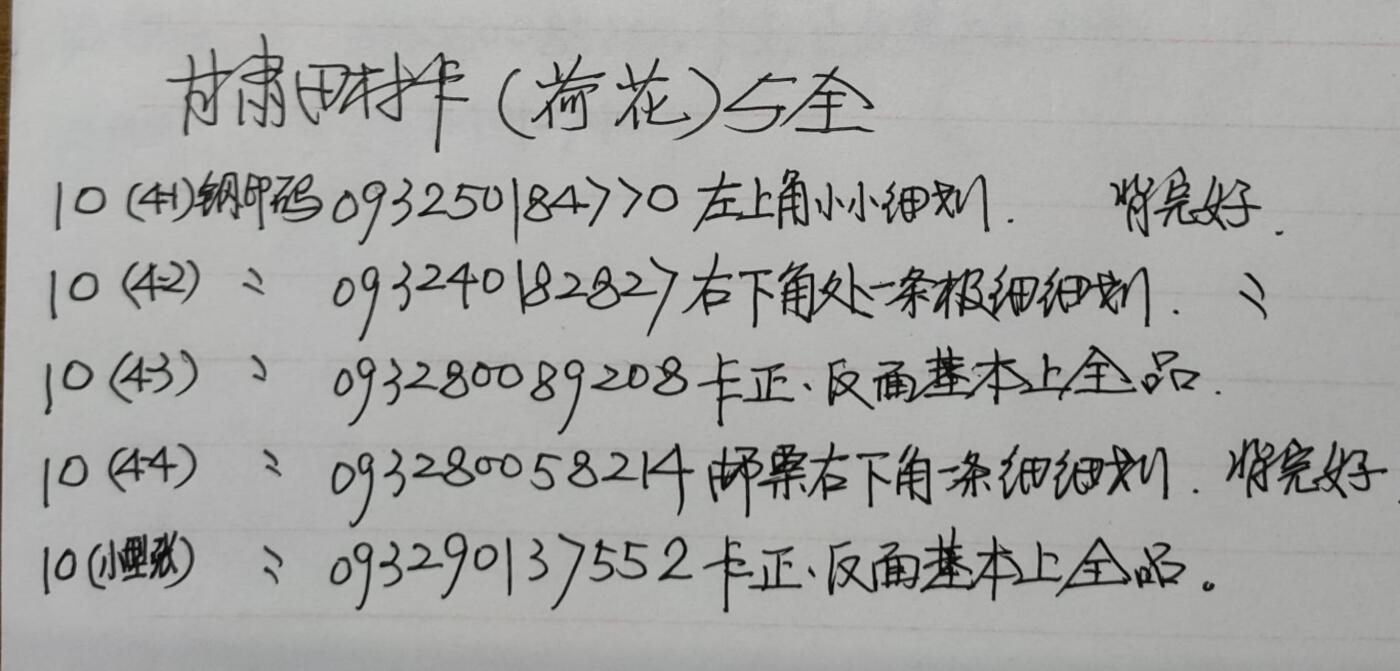 甘肃田村卡(荷花)5全
10(4-1)钢印码093250184770左上角小小细划. 背完好.
10(4-2) 〃 093240182827右下角处一条极细细划. 〃
10(4-3) 〃 093280089208卡正、反面基本上全品.
10(4-4) 〃 093280058214邮票右下角一条细细划. 背完好
10(小型张) 〃 093290137552卡正、反面基本上全品。